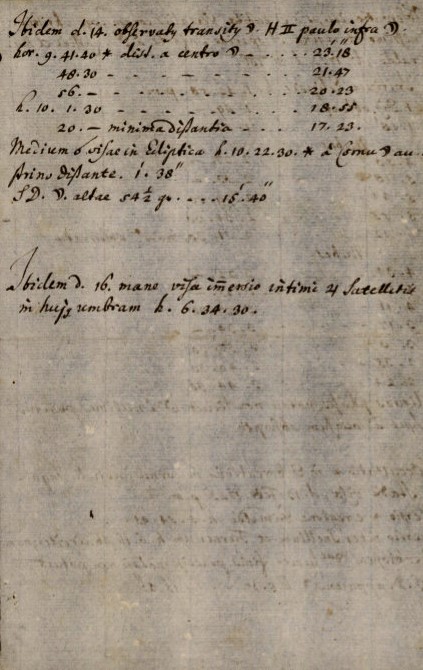 Ibidem d. 14. observatq transitq ☽ H ♊ paulo infra ☽.
hor. 9. 41. 40 * dist. a centro ☽ - . . . 23.′18″
48. 30 - - - - - - - 21. 47
56. - - - - - - - 20. 23
h. 10. 1. 30 - - - - - - 18. 55
20. - minima distantia - . . . 17. 23.
Medium ☌ visae in Ecliptica h. 10. 22. 30. * a Cornu ☽ au
strino distante. 1.′ 38″
S D. ☽. altae 54½ gr. . . . 15.′ 40″
Ibidem d. 16. mane visa im̄ersio intimi ♃ Satellitis
in hujq umbram h. 6. 34. 30.